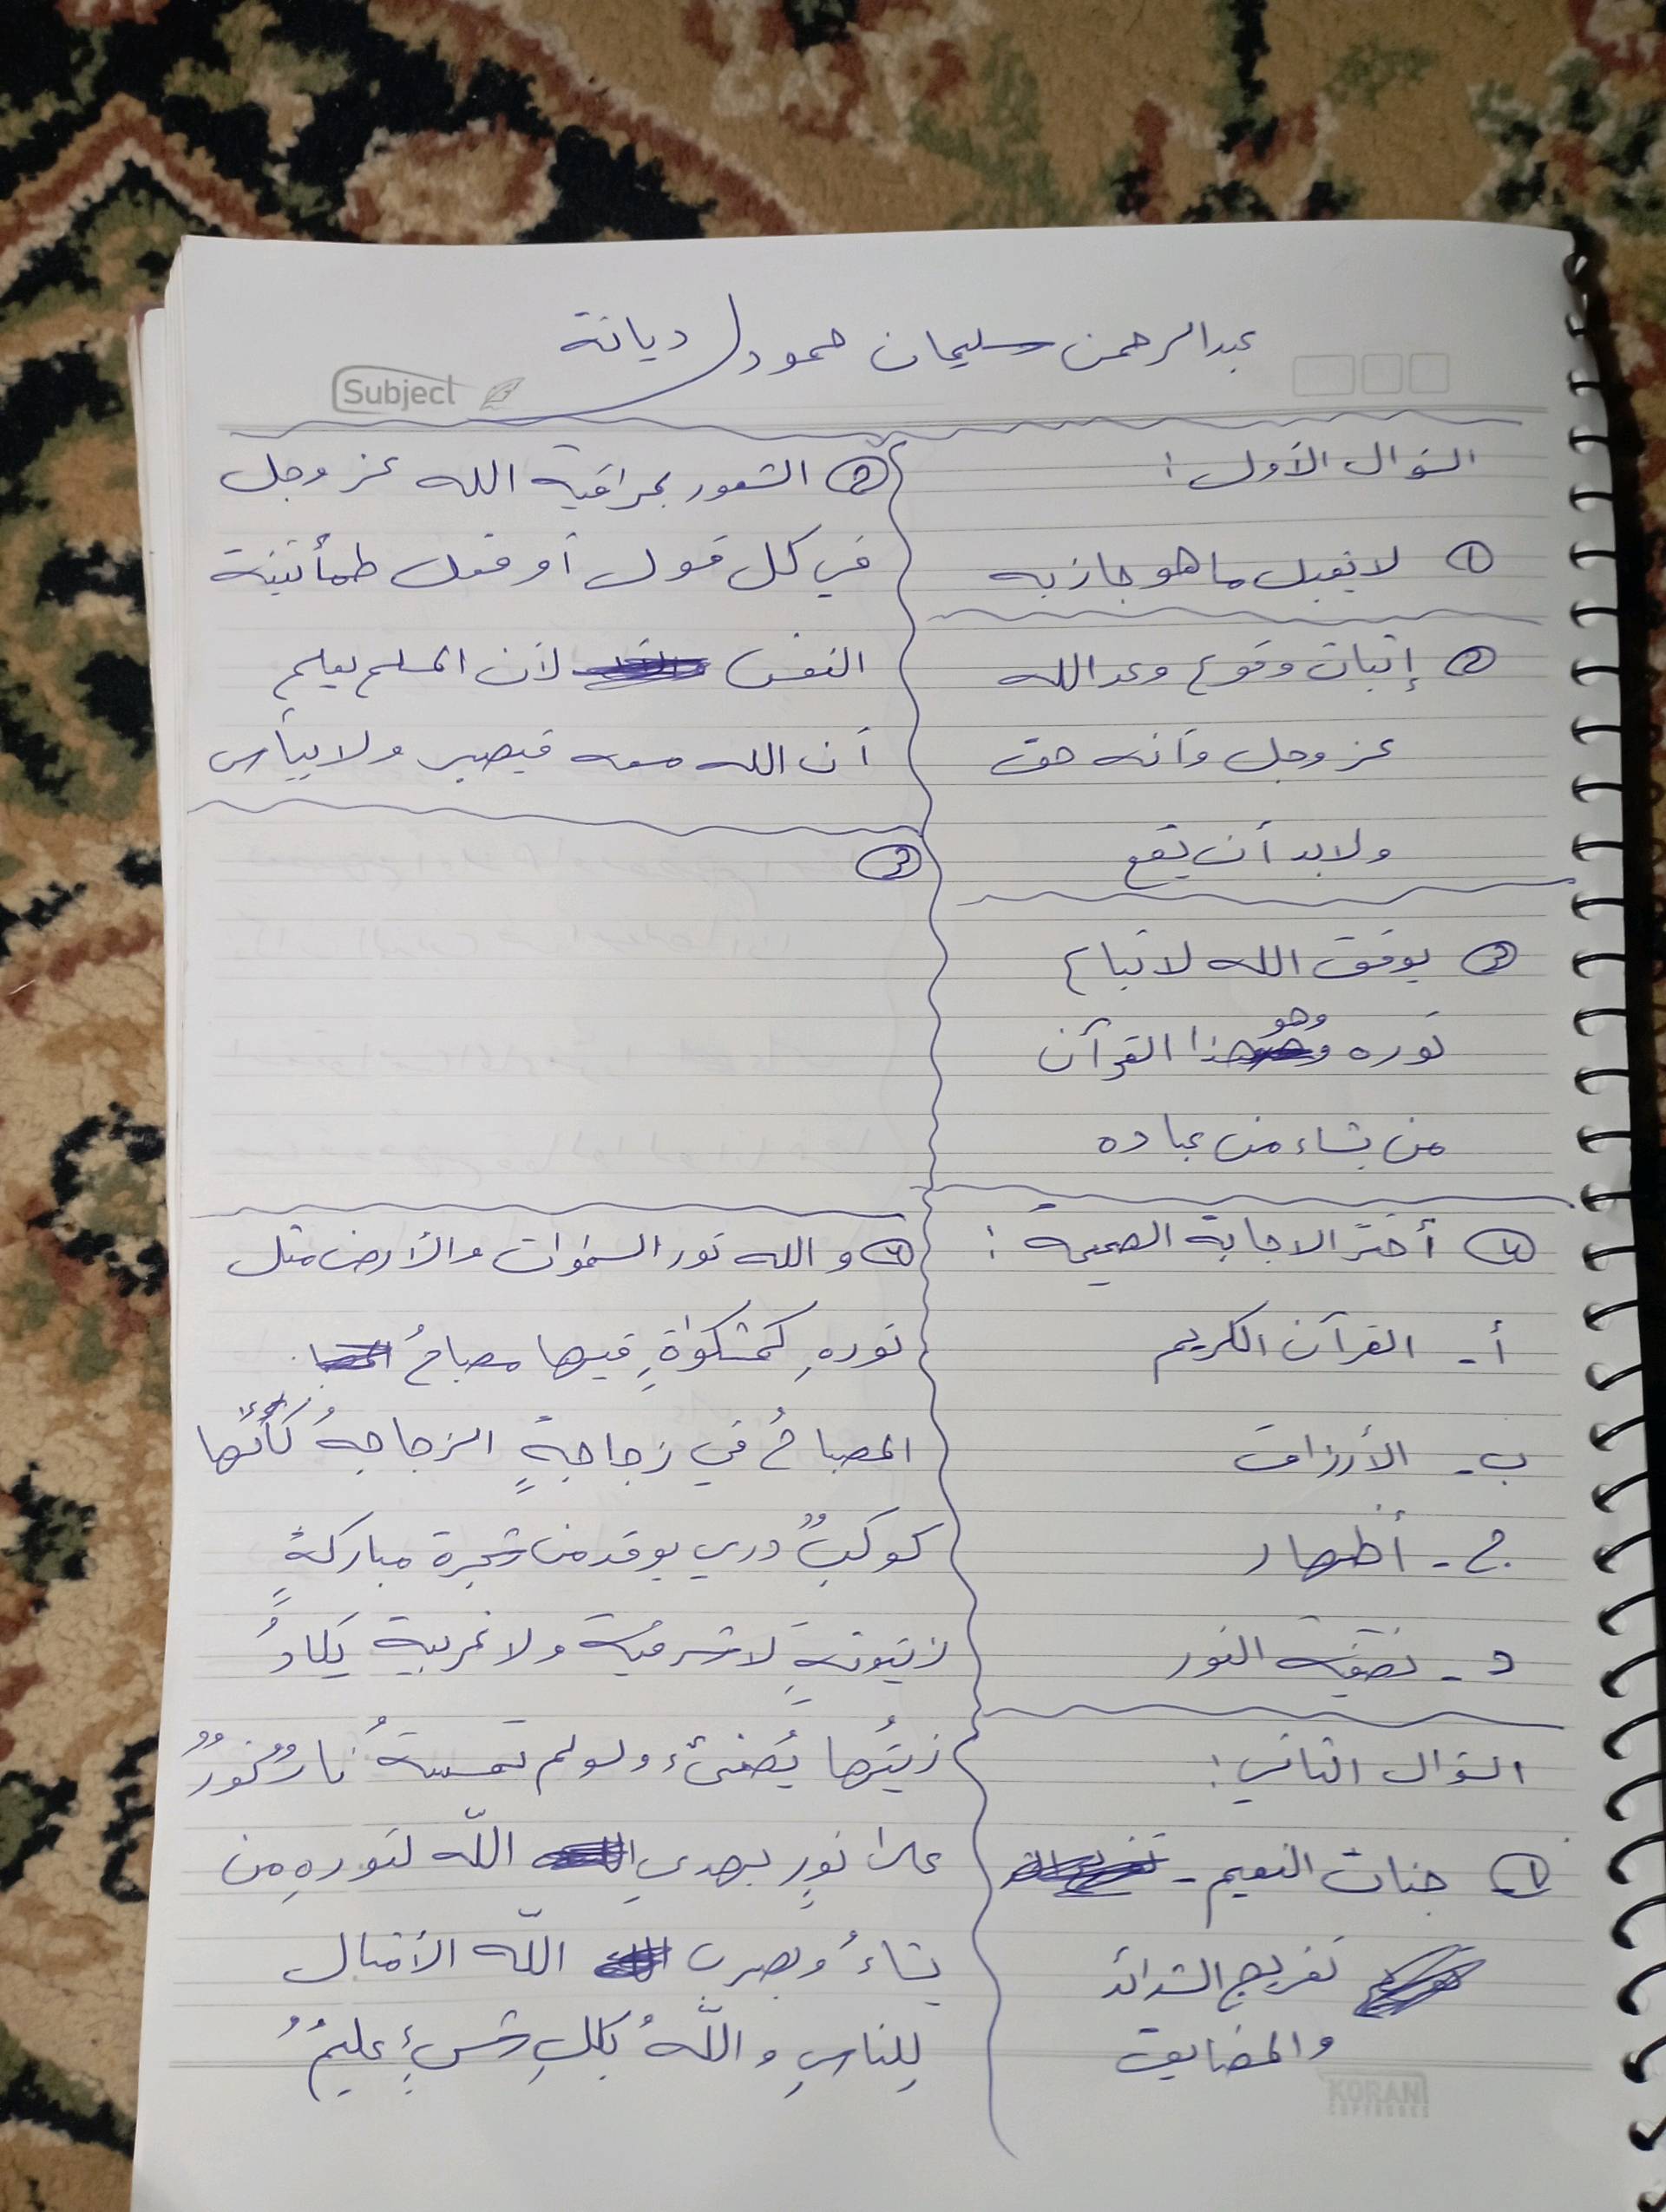 عبدالرحمن سليمان حمود / ديانة
Subject
السؤال الأول :
① لا يقبل ما هو جازبه
② إثبات وقوع وعد الله
عز وجل وأنه حق
ولابد أن يقع
③ يوفق الله لاتباع
نوره وهو هذا القرآن
من يشاء من عباده
④ أختر الاجابة الصحيحة :
أ - القرآن الكريم
ب - الأرزاق
ج - أظهار
د - نصفية النور
السؤال الثاني :
① جنات النعيم -
تفريج الشدائد
والمضايق
② الشعور بمراقبة الله عز وجل
في كل قول أو فعل طمأنينة
النفس لأن المسلم يعلم
أن الله معه فيصبر ولا ييأس
③
④ و الله نور السمٰوات والأرض مثل
نورهِ كمشكوٰةٍ فيها مصباحُ
المصباحُ في زجاجةٍ الزجاجةُ كأنَّها
كوكبٌ دري يوقد من شجرة مباركةٍ
زيتونةٍ لا شرقية ولا غربية يكادُ
زيتُها يُضئُ ولو لم تمسسهُ نارٌ نورٌ
على نورٍ يهدي اللّه لنورهِ من
يشاءُ ويضرب اللّه الأمثال
لِلناسِ واللّهُ بكلِ شيءٍ عليمٌ
KORAN
COPYBOOKS